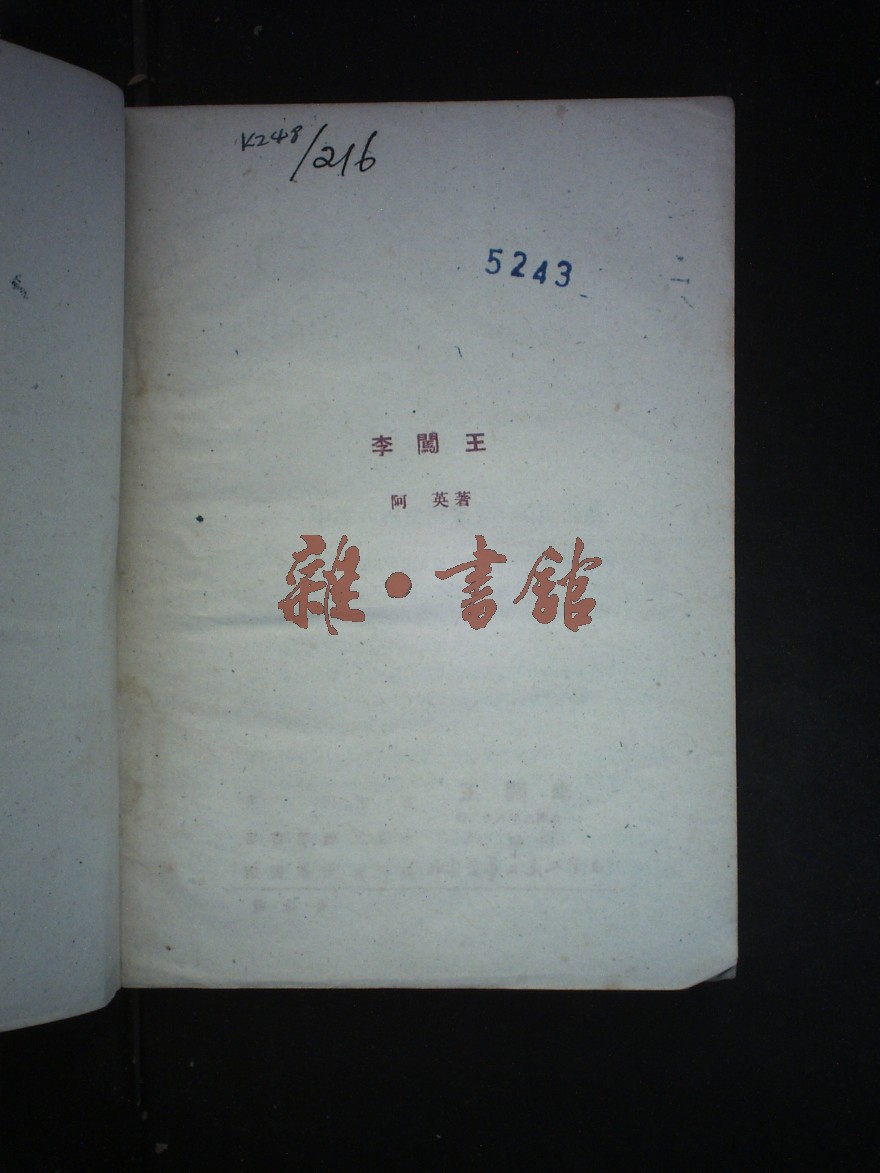 K248
/216
5243
李闖王
阿英著
雜·書館